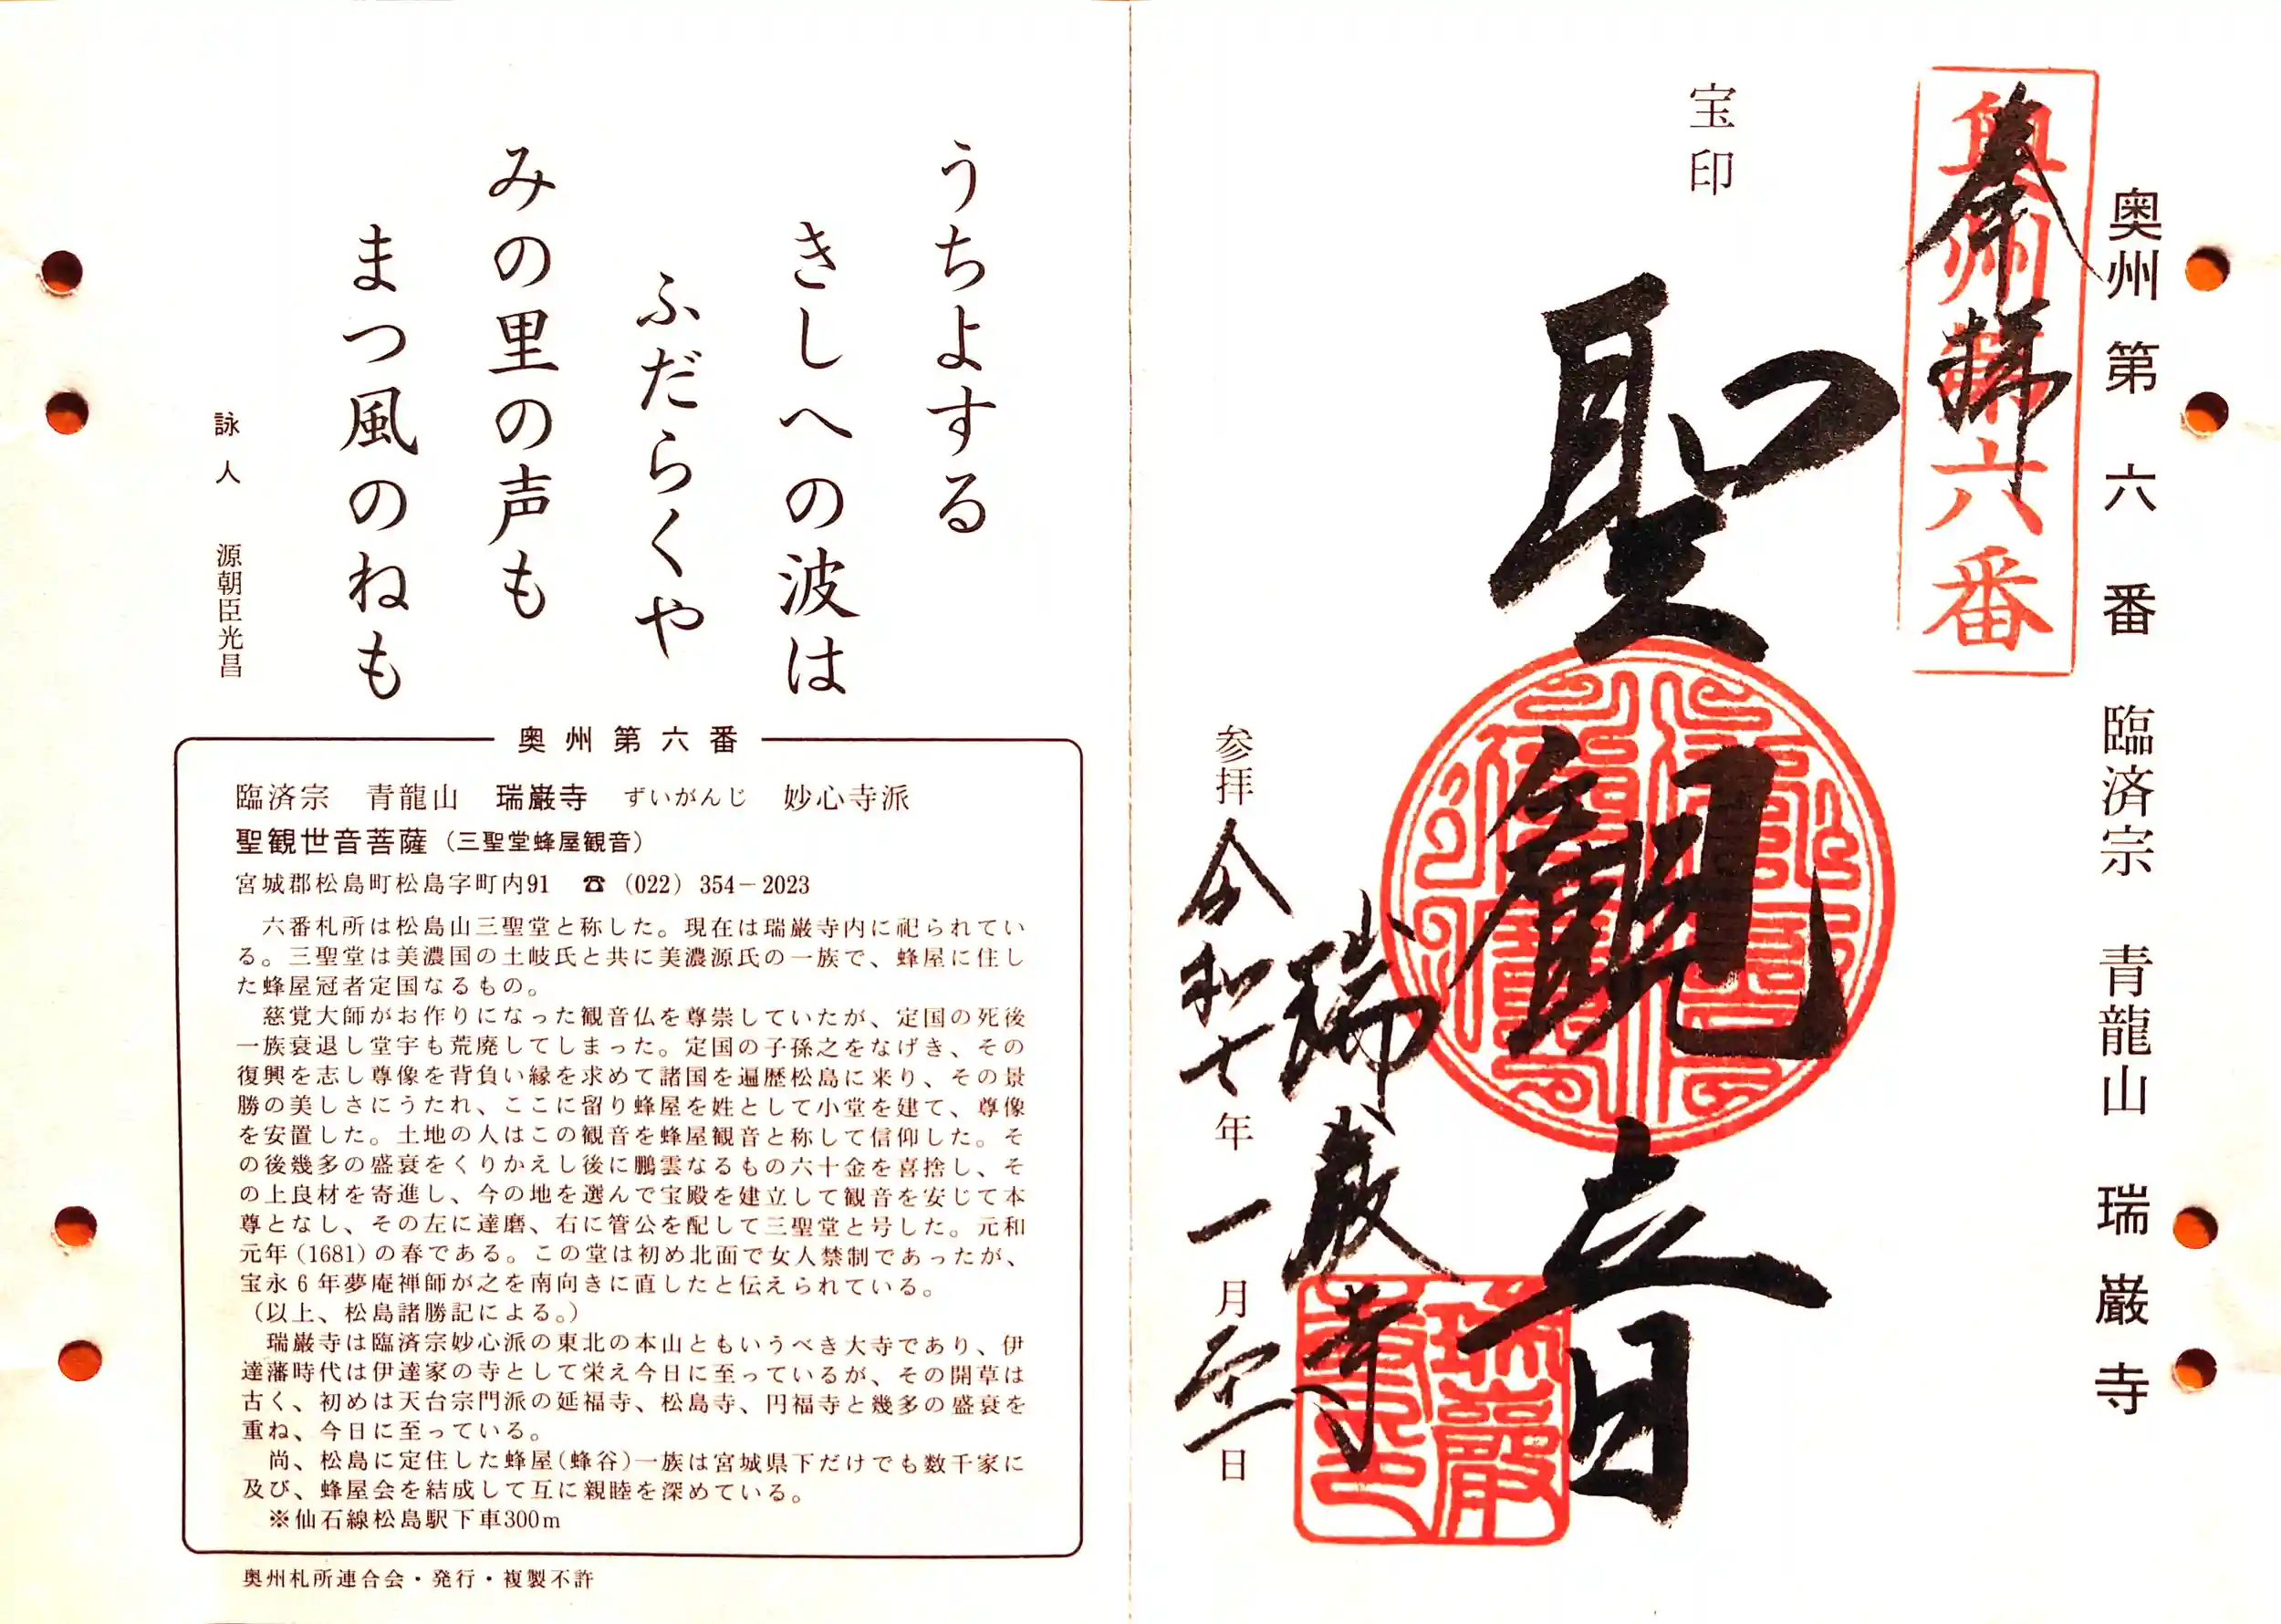 奥州第六番 臨済宗 青龍山 瑞巌寺
奥州第六番
奉拝
宝印
聖観音
瑞巌寺
参拝 令和七年一月 日
うちよする
きしへの波は
ふだらくや
みの里の声も
まつ風のねも
詠人 源朝臣光昌
奥州第六番
臨済宗 青龍山 瑞巌寺 ずいがんじ 妙心寺派
聖観世音菩薩(三聖堂蜂屋観音)
宮城郡松島町松島字町内91 ☎(022)354-2023
六番札所は松島山三聖堂と称した。現在は瑞巌寺内に祀られてい
る。三聖堂は美濃国の土岐氏と共に美濃源氏の一族で、蜂屋に住し
た蜂屋冠者定国なるもの。
慈覚大師がお作りになった観音仏を尊崇していたが、定国の死後
一族衰退し堂宇も荒廃してしまった。定国の子孫之をなげき、その
復興を志し尊像を背負い縁を求めて諸国を遍歴松島に来り、その景
勝の美しさにうたれ、ここに留り蜂屋を姓として小堂を建て、尊像
を安置した。土地の人はこの観音を蜂屋観音と称して信仰した。そ
の後幾多の盛衰をくりかえし後に鵬雲なるもの六十金を喜捨し、そ
の上良材を寄進し、今の地を選んで宝殿を建立して観音を安じて本
尊となし、その左に達磨、右に管公を配して三聖堂と号した。元和
元年(1681)の春である。この堂は初め北面で女人禁制であったが、
宝永6年夢庵禅師が之を南向きに直したと伝えられている。
(以上、松島諸勝記による。)
瑞巌寺は臨済宗妙心派の東北の本山ともいうべき大寺であり、伊
達藩時代は伊達家の寺として栄え今日に至っているが、その開草は
古く、初めは天台宗門派の延福寺、松島寺、円福寺と幾多の盛衰を
重ね、今日に至っている。
尚、松島に定住した蜂屋(蜂谷)一族は宮城県下だけでも数千家に
及び、蜂屋会を結成して互に親睦を深めている。
※仙石線松島駅下車300m
奥州札所連合会・発行・複製不許